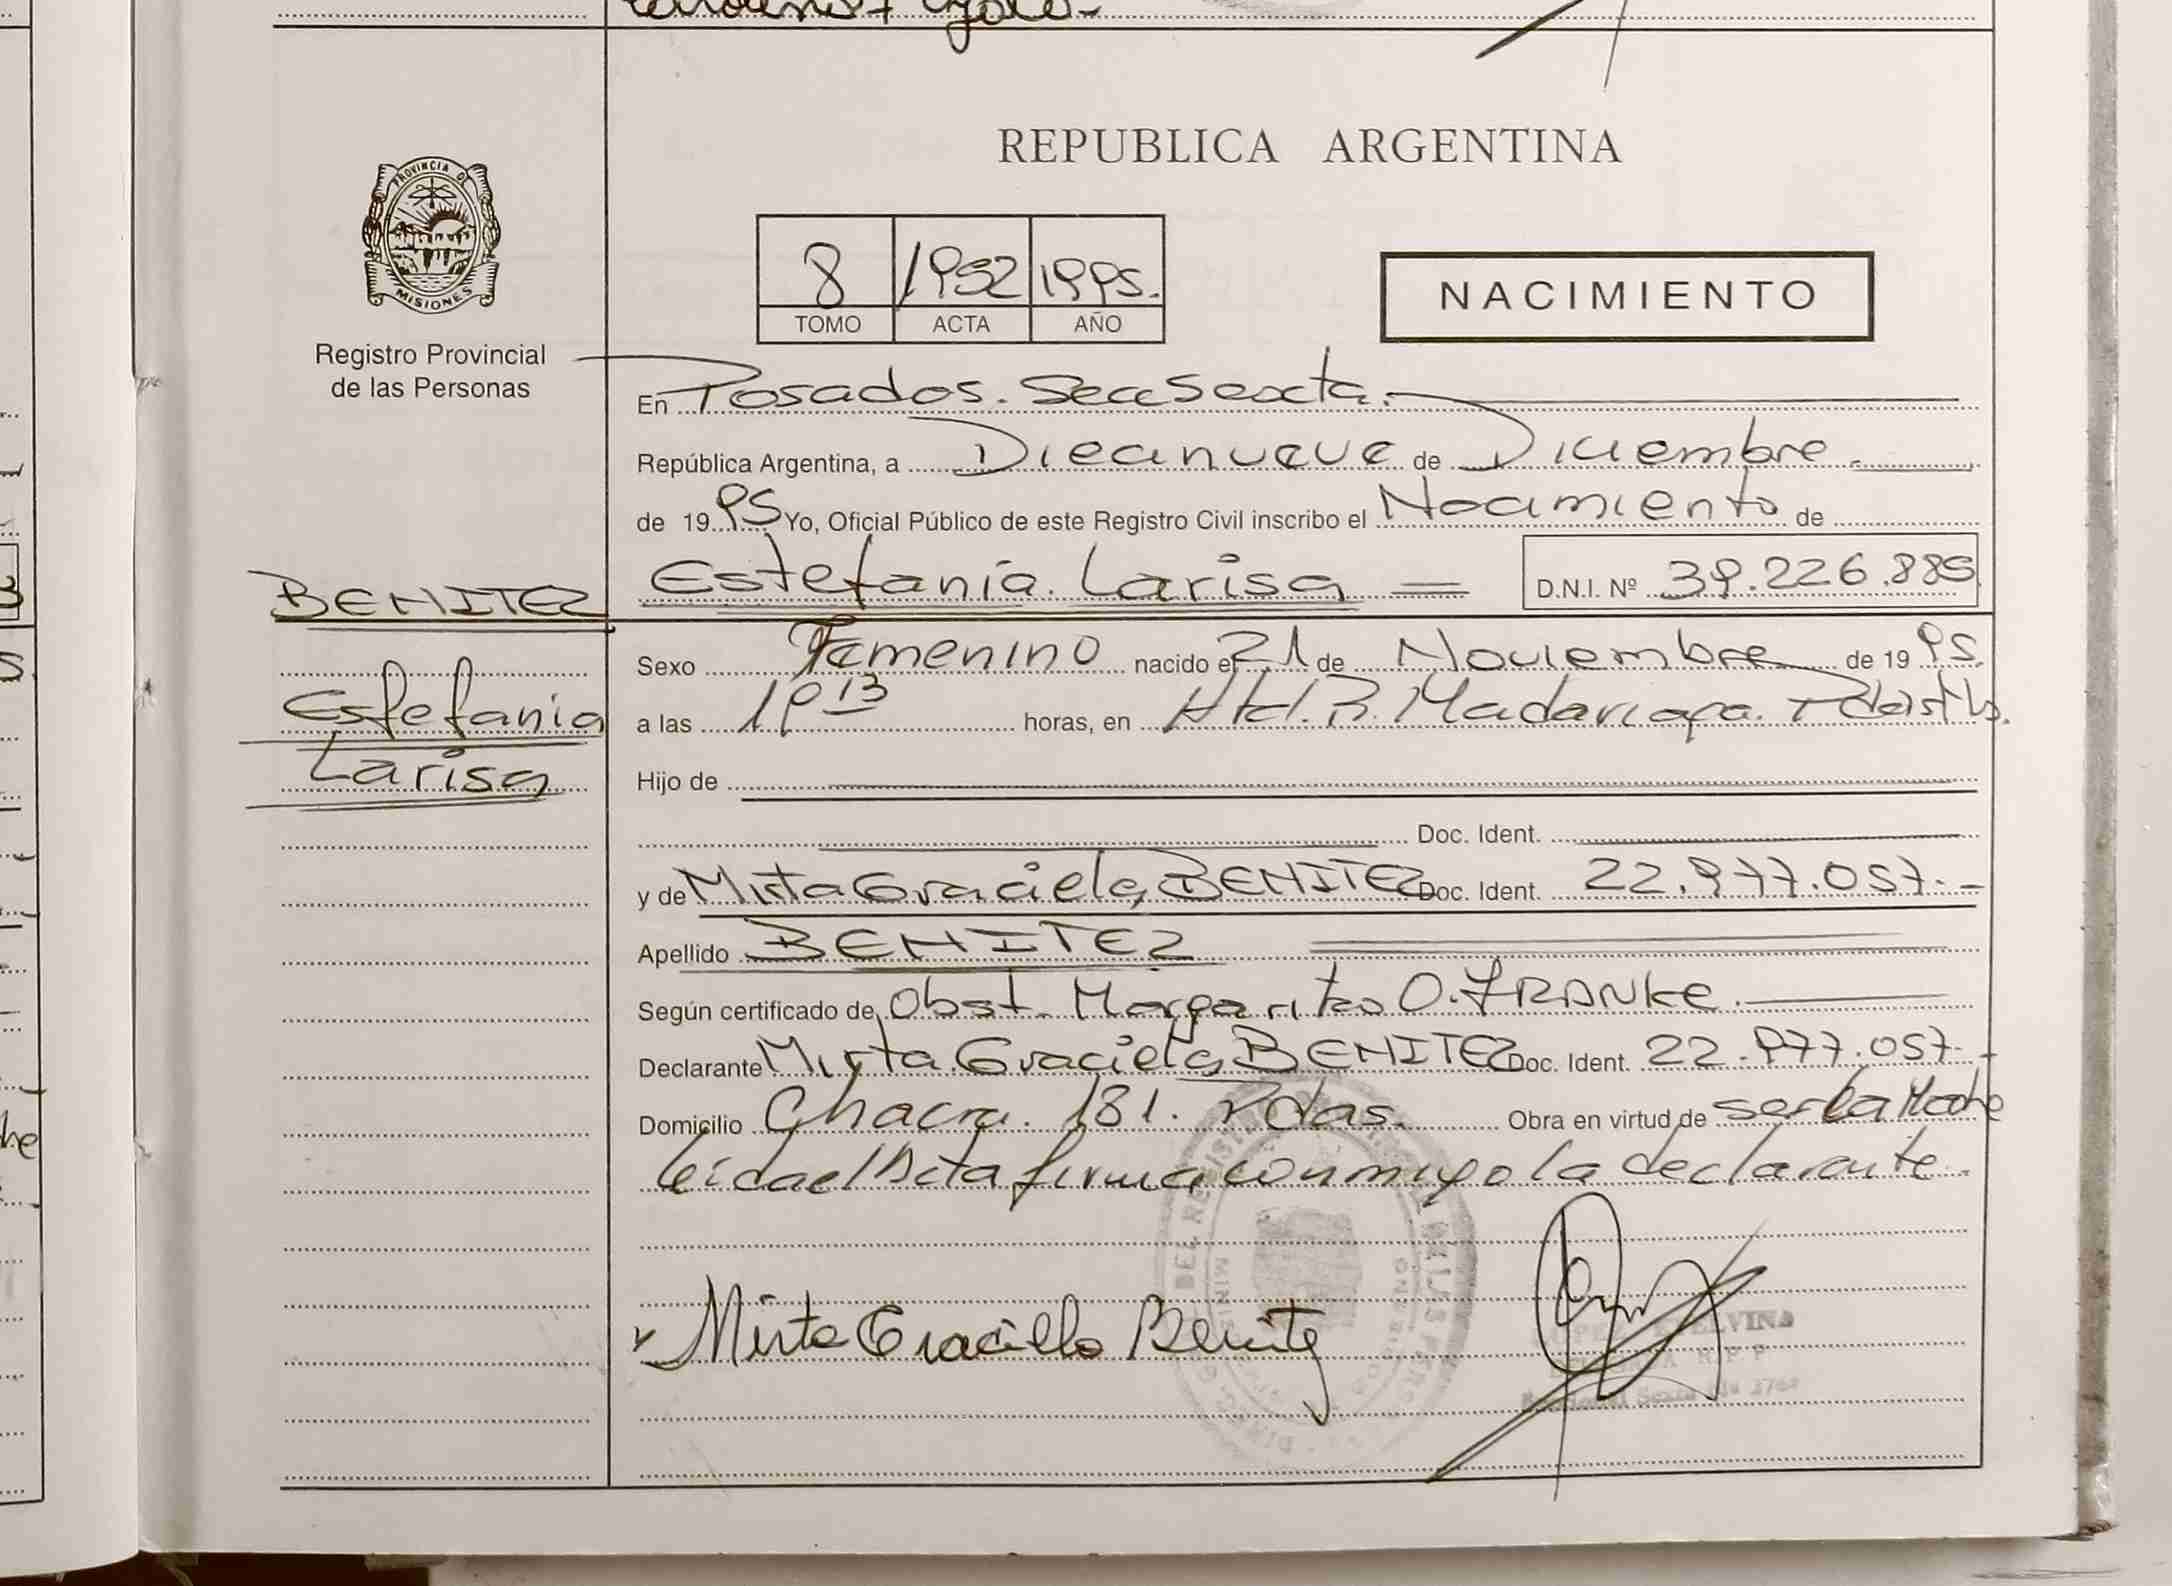 REPUBLICA ARGENTINA
PROVINCIA DE
MISIONES
Registro Provincial
de las Personas
8 1952 1995.
TOMO ACTA AÑO
NACIMIENTO
En Posadas. Secc Sexta.
República Argentina, a Diecinueve de Diciembre
de 1995 Yo, Oficial Público de este Registro Civil inscribo el Nacimiento de
BENITEZ Estefanía Larisa D.N.I. Nº 39.226.885
Sexo Femenino nacido el 21 de Noviembre de 1995.
Estefania
a las 19 13 horas, en R. Madariaga.
Larisa
Hijo de
Doc. Ident.
y de Mirta Graciela BENITEZ Doc. Ident. 22.977.057.
Apellido BENITEZ
Según certificado de Obst. Margarita O. FRANKE.
Declarante Mirta Graciela BENITEZ Doc. Ident. 22.977.057.
Domicilio Chacra. 181. Pdas. Obra en virtud de ser la Madre
leida el Acta firma conmigo la declarante.
Mirta Graciella Benitez